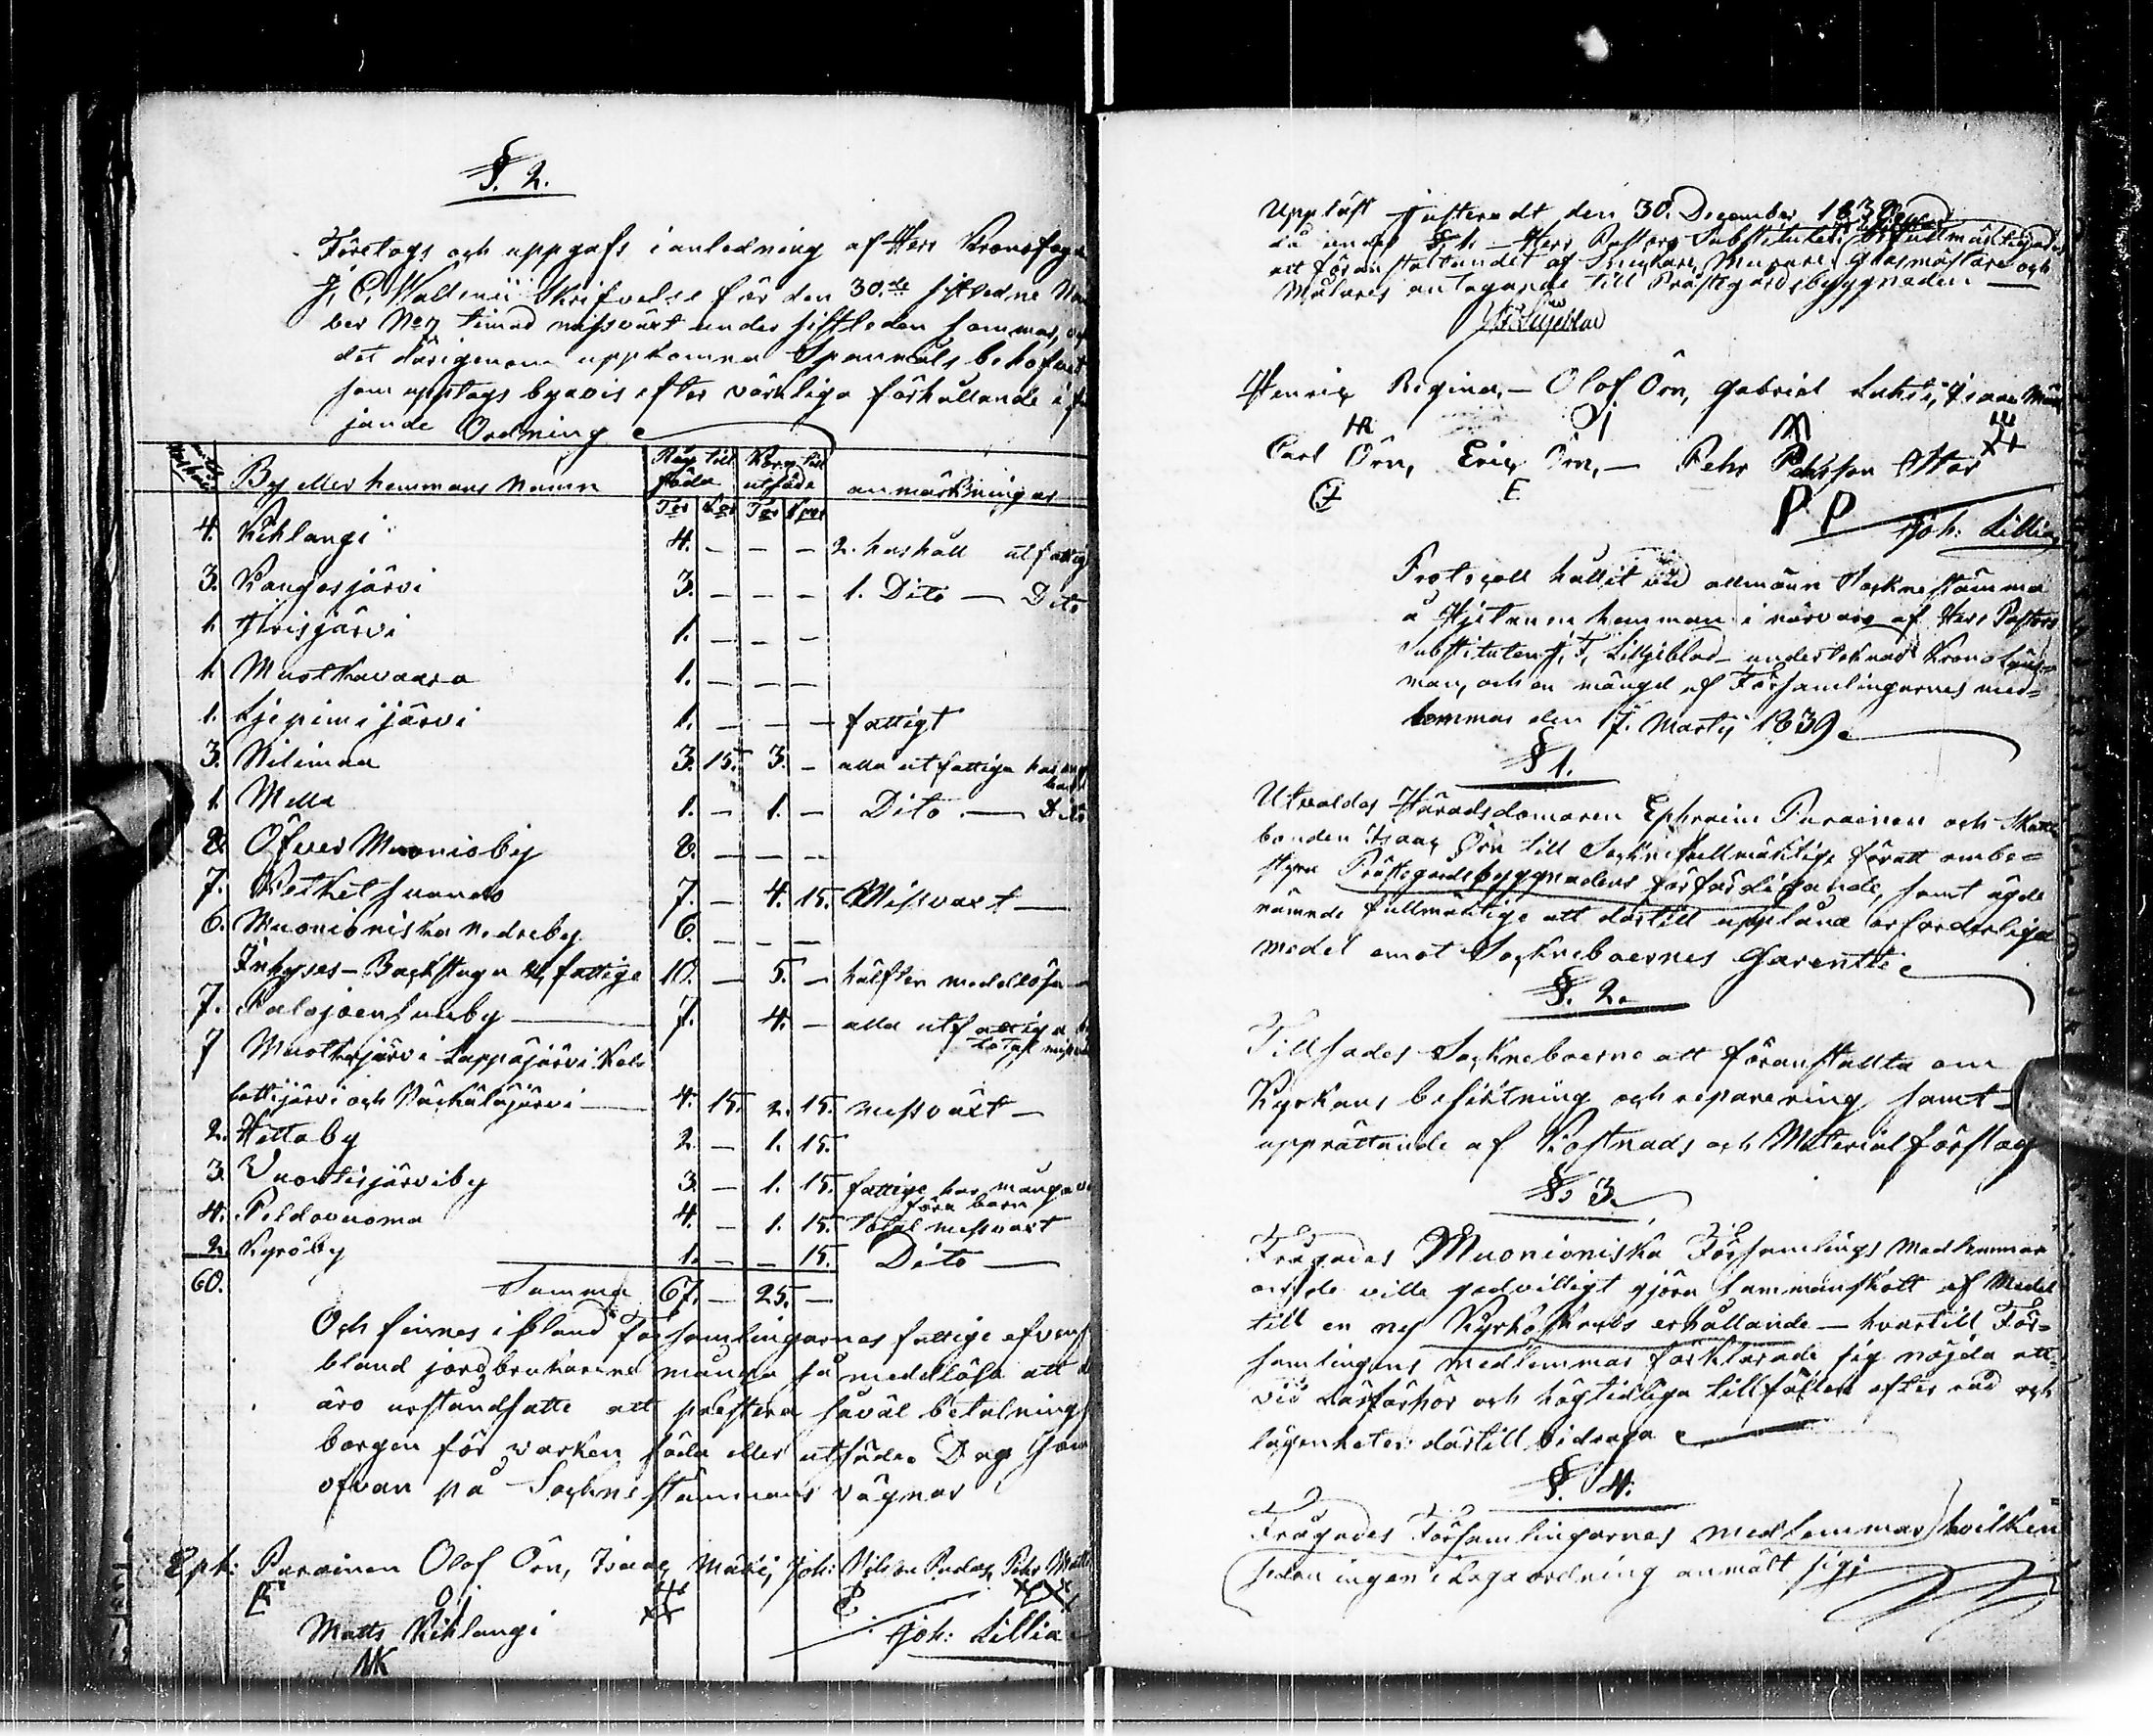 §. 2.
Företogs och uppgafs i anledning af Herr Kronofog
J. C. Wallenii Skrifvelse för den 30.de sistledne
ber No 7 timad missväxt under sistleden sommar,
det därigenom uppkomna Spanmåls behofvet
som upptogs byavis efter värkliga förhållande i
jande Ordning
By eller hemmans Namn Råg till föda Korn till utsäde anmärkningar
Tr Kpr Tr Kpr
4. Kihlangi 4. - - - 2. hushåll utfattig
3. Kangosjärvi 3. - - - 1. Dito — Dito
1. Jerisjärvi 1. - - -
1. Muotkavaara 1. - - -
1. Liepimäjärvi 1. - - - fattigt
3. Nilimaa 3. 15. 3. - alla utfattiga
1. Mella 1. - 1. - Dito — Dito
8. Öfver Muonioby 8. - - -
7. Ketkesuando 7. - 4. 15. Missvaxt —
6. Muonioniska Nedreby 6. - - -
Inhyses - Backstugu & fattige 10. - 5. - hälften medellösa
7. Palojoensuuby — 7. 4. - alla utfattiga
total
7 Muotkajärvi Lappajärvi
lottijärvi och Näkkäläjärvi — 4. 15. 2. 15. missväxt —
2. Hettaby 2. - 1. 15.
3. Vuontisjärviby 3. - 1. 15. fattige har många
barn
4. Peldovuoma 4. - 1. 15. total missvaxt
2. Kyröby 1. - - 15. Dito —
60. Summa 67. - 25. -
Och finnes i bland Församlingarnes fattige äfven
bland jordbrukarene många så medellösa att
äro urståndsatte att prestera såväl betalning
borgen för varken föda eller utsäde. Dag
ofvan på Sockne stämmans vägnar
Eph: Parainen Olof Örn, Isaac Mäki, Joh: Nilsson Pudas, Pehr
E
Matts Kihlangi
MK
Joh: Lillia
Uppläst Justeradt den 30. December 1838
då under § 1. Herr Pastors Substituten befullmäktigades
att föranstaltandet af Snickare, Murare, Glasmästare och
Målares antagande till Prästegårdsbyggnaden —
Liljeblad
Henric Regina, - Olof Örn, Gabriel Lahti, Isaac
HR
Carl Örn, Eric Örn, - Pehr Pehrsson Ollar
E PP
Joh: Lillia
Protocoll hållit vid allmänn Socknestämma
å Hjetanen hemman i närvaro af Herr Pastors
Substituten J. F. Liljeblad undertecknad Kronolens=
man, och en mängd af Församlingarnes med=
lemmar den 17. Martij 1839.
§ 1.
Utvaldes Häradsdomaren Ephraim Parainen och Skatte
bonden Isaac Örn till Socknefullmäktige för att ombe=
styra Prästegårdsbyggnadens förfärdigande, samt ägde
nämnde fullmäktige att dertill upplåna erforderlige
medel emot Sockneboernes Garentie
§. 2.
Tillsades Sockneboerne att föranstallta om
Kyrkans besiktning och reparering samt
upprättande af Kostnads och Material förslag
§. 3.
Frågades Muonioniska Församlings Medlemmar
om de ville godvilligt gjöra sammanskott af Medel
till en ny Kyrko Skruds erhållande — hvartill För=
samlingens medlemmar förklarade sig nöjda att
vid Läsförhör och högtidliga tillfällen efter råd och
lägenheter dertill bidraga
§. 4.
Frågades Församlingarnes medlemmar, hvilken
sedan ingen i Laga ordning anmält sig,